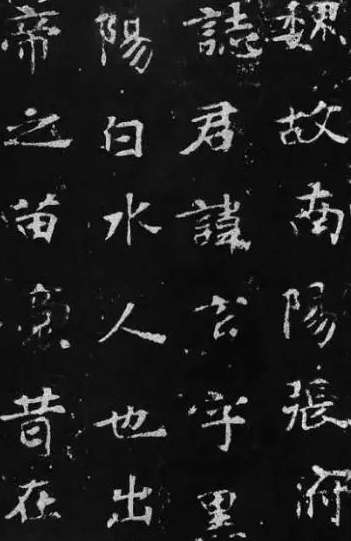 魏故南陽張府
誌君諱玄字黑
陽白水人也出
帝之苗裔昔在